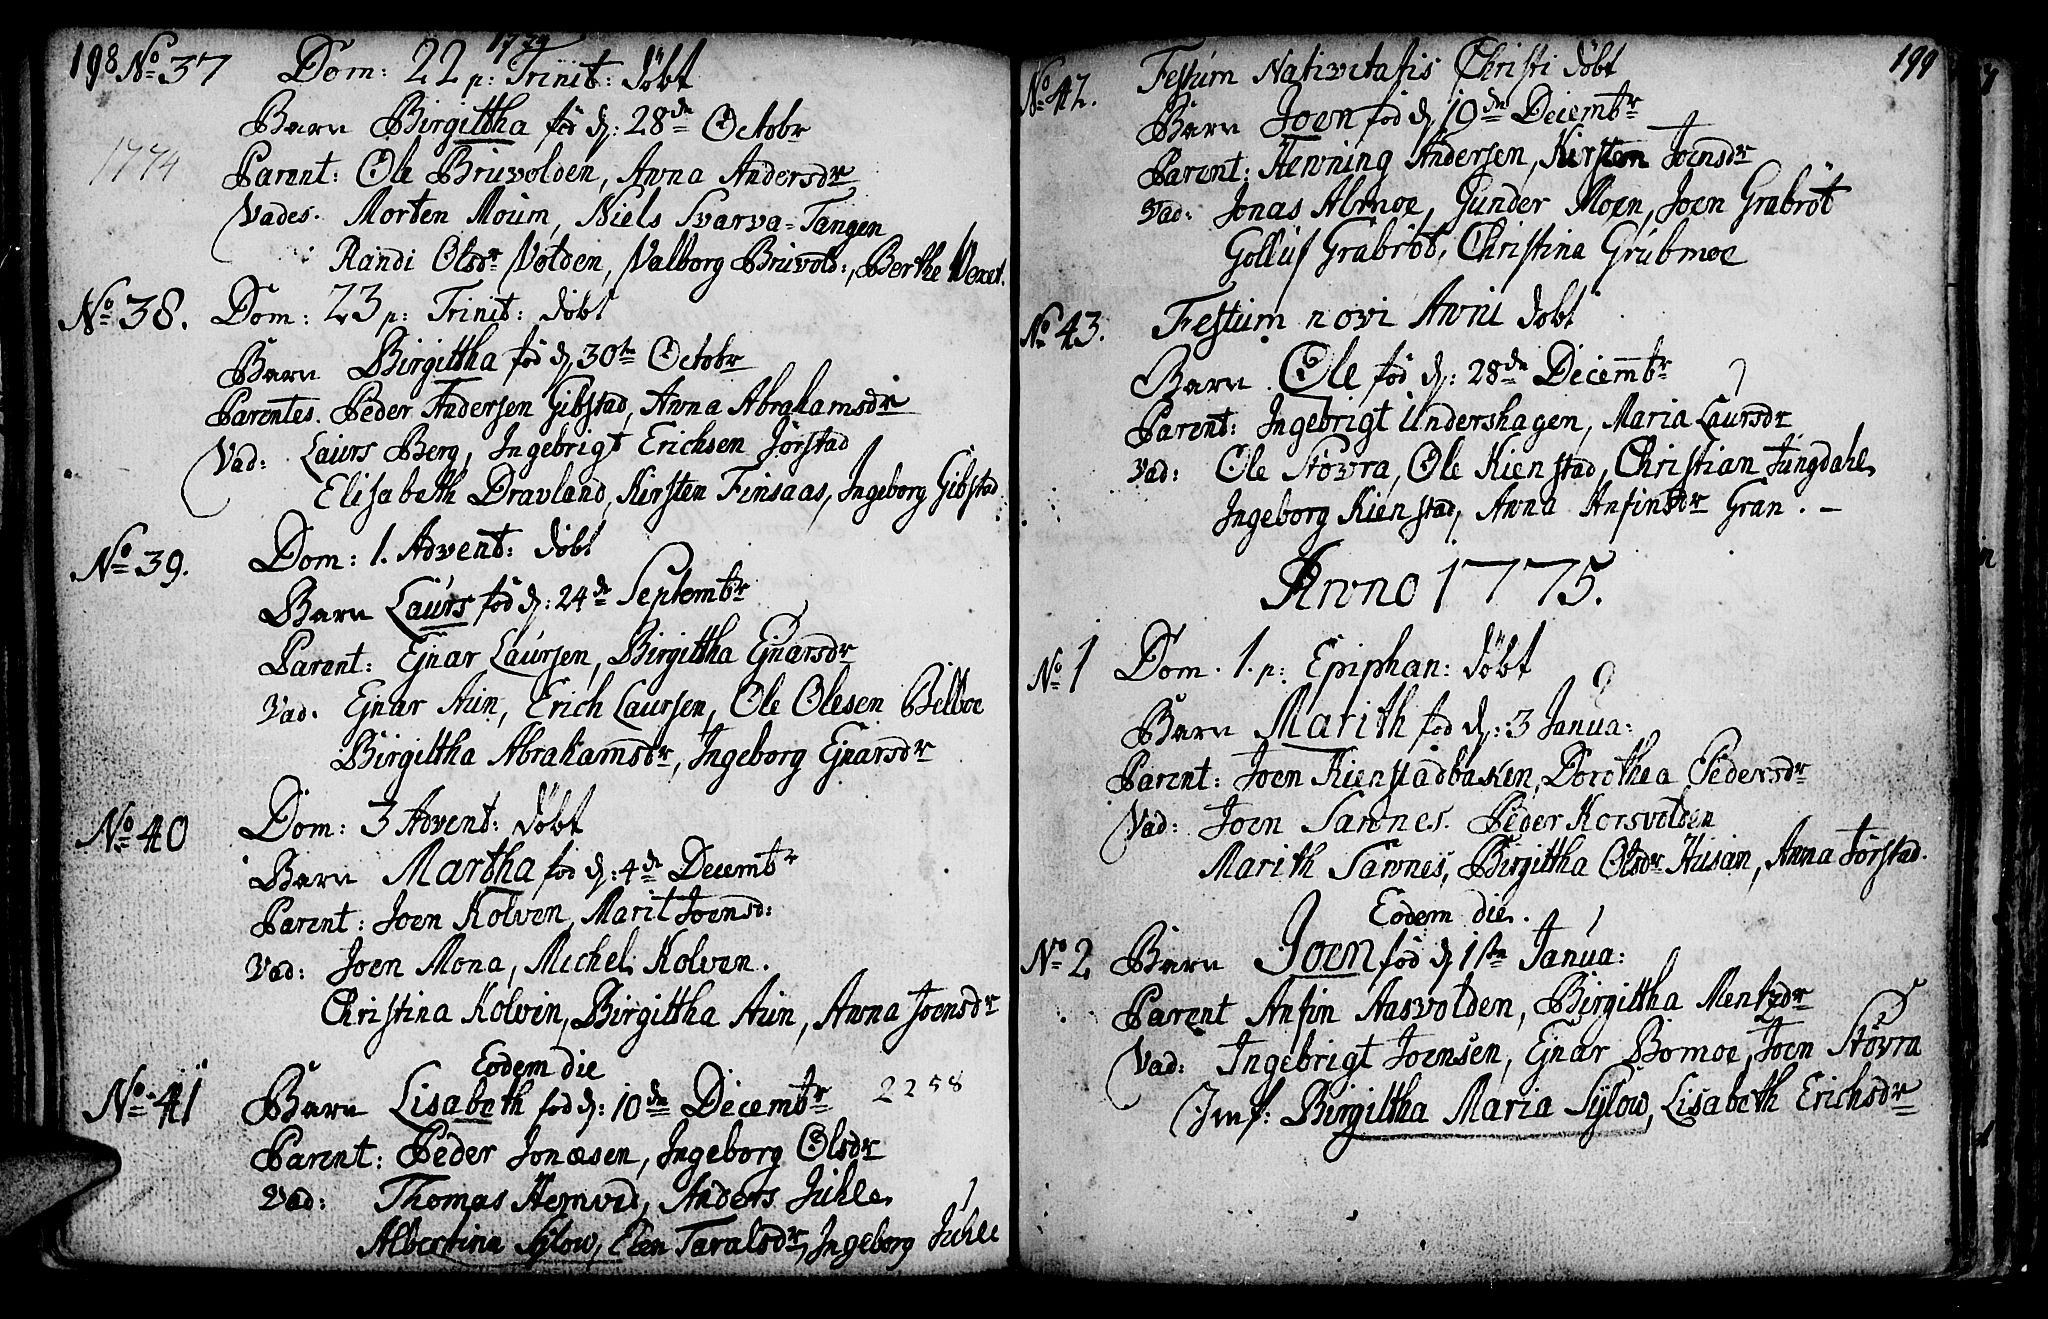 198 No 37 Dom: 22 p: Trinit: döbt
1774
Barn Birgittha föd d: 28de Octobr
1774
Parent: Ole Bruvolden, Anna Andersdr
Vades. Morten Moum, Niels Svarva-Tangen
Randi Olsdr Volden, Valborg Bruvold:, Berthe
No 38. Dom: 23 p: Trinit: döbt
Barn Birgittha föd d 30te Octobr
Parentes. Peder Andersen Gibstad, Anna Abrahamsdr
Vad: Laurs Berg, Ingebrigt Erichsen Jörstad
Elisabeth Dravland, Kirsten Finsaas, Ingeborg Gibstad
No 39. Dom: 1. Advent: döbt
Barn Laurs föd d: 24de Septembr
Parent: Ejnar Laursen, Birgittha Ejnarsdr
Vad. Ejnar Aun, Erich Laursen, Ole Olesen Belboe
Birgittha Abrahamsdr, Ingeborg Ejnarsdr
No 40 Dom: 3 Advent: döbt
Barn Martha föd d: 4de Decembr
Parent: Joen Kolven, Marit Joensd:
Vad: Joen Mona, Michel Kolven.
Christina Kolven, Birgittha Aun, Anna Joensdr
Eodem die
No 41 Barn Lisabeth föd d: 10de Decembr 2258
Parent: Peder Jonæsen, Ingeborg Olsdr
Vad: Thomas Hemvid, Anders Juhle
Albertina Sylow, Elen Taralsdr, Ingeborg Juhle
199
No 42. Festum Nativitatis Christi döbt
Barn Joen föd d 19de Decembr
Parent: Henning Andersen, Kirsten Joensdr
Vad: Jonas Almoe, Gunder Moen, Joen Grabröt
Golluf Grabröt, Christina Grubmoe
No 43. Festum novi Anni döbt
Barn Ole föd d: 28de Decembr
Parent: Ingebrigt Undershagen, Maria Laursdr
Vad: Ole Stövra, Ole Kienstad, Christian Jungdahl,
Ingeborg Kienstad, Anna Anfinsdr Gran. –
Anno 1775.
No 1 Dom. 1. p: Epiphan: döbt
Barn Marith föd d: 3 Janua:
Parent: Joen Kienstadbaken, Dorothea Pedersdr
Vad: Joen Sannes. Peder Korsvolden
Marith Sannes, Birgittha Olsdr Husan, Anna Jörstad.
Eodem die.
No 2 Barn Joen föd d 1ste Janua:
Parent Anfin Aasvolden, Birgittha Mentzdr
Vad: Ingebrigt Joensen, Ejnar Bomoe, Joen Stövra
Jmf: Birgittha Maria Sylow, Lisabeth Erichsdr